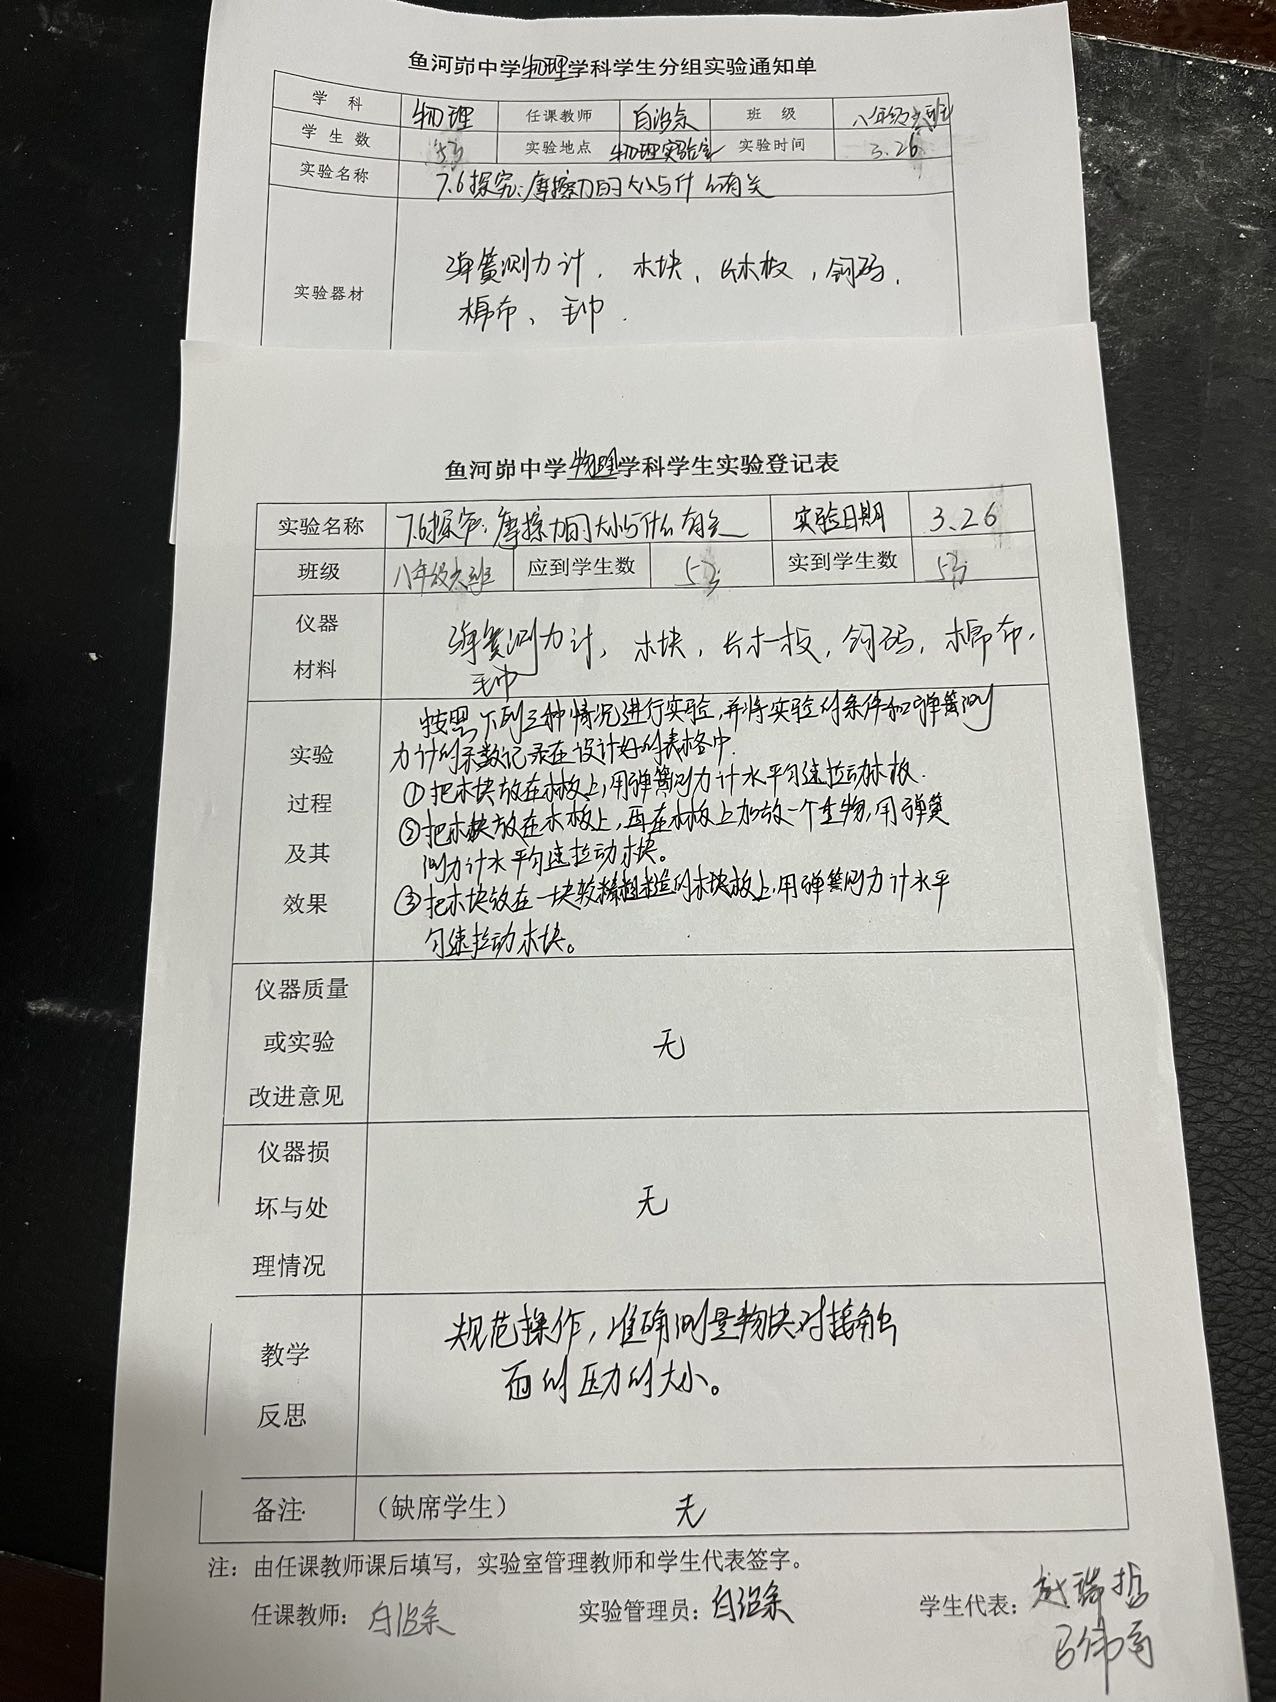 鱼河峁中学物理学科学生分组实验通知单
学 科 物理 任课教师 白治余 班 级 八年级六班
学 生 数 53 实验地点 物理实验室 实验时间 3.26
实验名称 7.6探究:摩擦力的大小与什么有关
实验器材 弹簧测力计、木块、长木板,钩码,
棉布、毛巾.
鱼河峁中学物理学科学生实验登记表
实验名称 7.6探究:摩擦力的大小与什么有关 实验日期 3.26
班级 八年级六班 应到学生数 53 实到学生数 53
仪器
材料
弹簧测力计,木块,长木板,钩码,棉布,
毛巾
实验
过程
及其
效果
按照下列三种情况进行实验,并将实验的条件和弹簧测
力计的示数记录在设计好的表格中.
①把木块放在木板上,用弹簧测力计水平匀速拉动木板.
②把木块放在木板上,再在木板上加放一个重物,用弹簧
测力计水平匀速拉动木块。
③把木块放在一块较粗糙的木板上,用弹簧测力计水平
匀速拉动木块。
仪器质量
或实验
改进意见
无
仪器损
坏与处
理情况
无
教学
反思
规范操作,准确测量物块对接触
面的压力的大小。
备注 (缺席学生) 无
注:由任课教师课后填写,实验室管理教师和学生代表签字。
任课教师:白治余 实验管理员:白治余 学生代表:赵瑞哲
马伟南